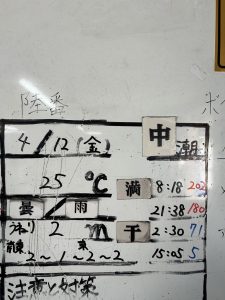 陸番
4/12(金) 中 潮
25 ℃ 満 8:18 202
曇/雨 21:38 180
うねり 2 m 干 2:30 71
2〜1〜2〜2 15:05 5
注意と対策